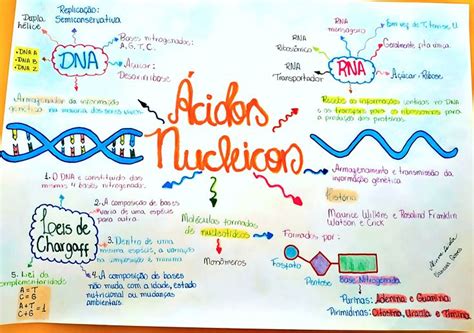 Replicação:
Semiconservativa
Dupla
hélice
DNA A
DNA B
DNA Z
DNA
Bases nitrogenadas:
A, G, T, C.
Açúcar:
Desoxirribose
Armazenador da informação
genética na maioria dos seres vivos.
RNA
mensageiro
RNA
Ribossômico
RNA
Transportador
RNA
Em vez de T, tem se U
Geralmente fita única
Açúcar: Ribose
Recebe as informações contidas no DNA
e as transfere para os ribossomos para
a produção das proteínas.
Ácidos
Nucleicos
Armazenamento e transmissão da
informação genética
História
Maurice Wilkins e Rosalind Franklin
Watson e Crick
1. O DNA é constituído das
mesmas 4 bases nitrogenadas.
2. A composição de bases
varia de uma espécie para
outra.
Leis de
Chargaff
3. Dentro de uma
mesma espécie, a variação
na composição é mínima
4. A composição de bases
não muda com a idade, estado
nutricional ou mudanças
ambientais
5. Lei da
complementaridade
A = T
C = G
A + T = 1
C + G
Moléculas formadas
de nucleotídeos
Monômeros
Formados por:
Fosfato
Pentose
Base Nitrogenada
Purinas: Adenina e Guanina
Pirimidinas: Citosina, Uracila e Timina